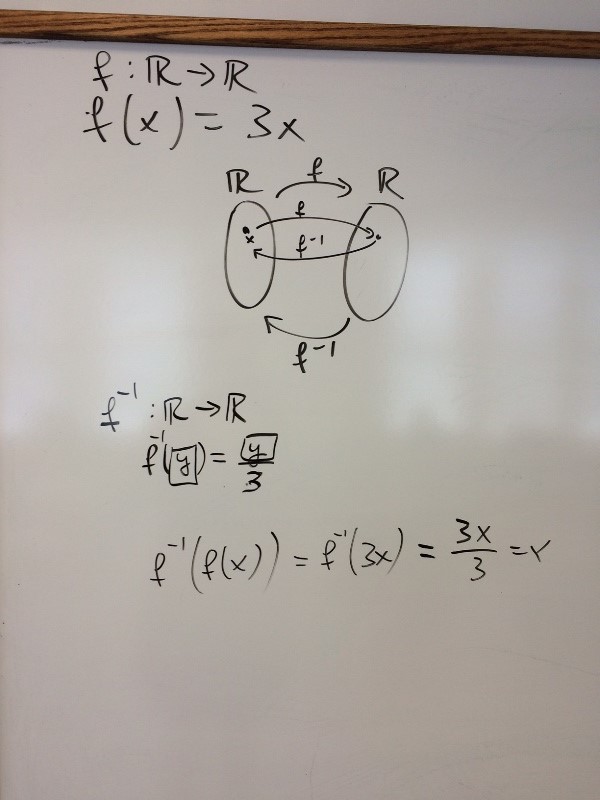 f : ℝ → ℝ
f(x) = 3x
ℝ f ℝ
f
x f⁻¹
f⁻¹
f⁻¹ : ℝ → ℝ
f⁻¹(y) = y/3
f⁻¹(f(x)) = f⁻¹(3x) = 3x/3 = x